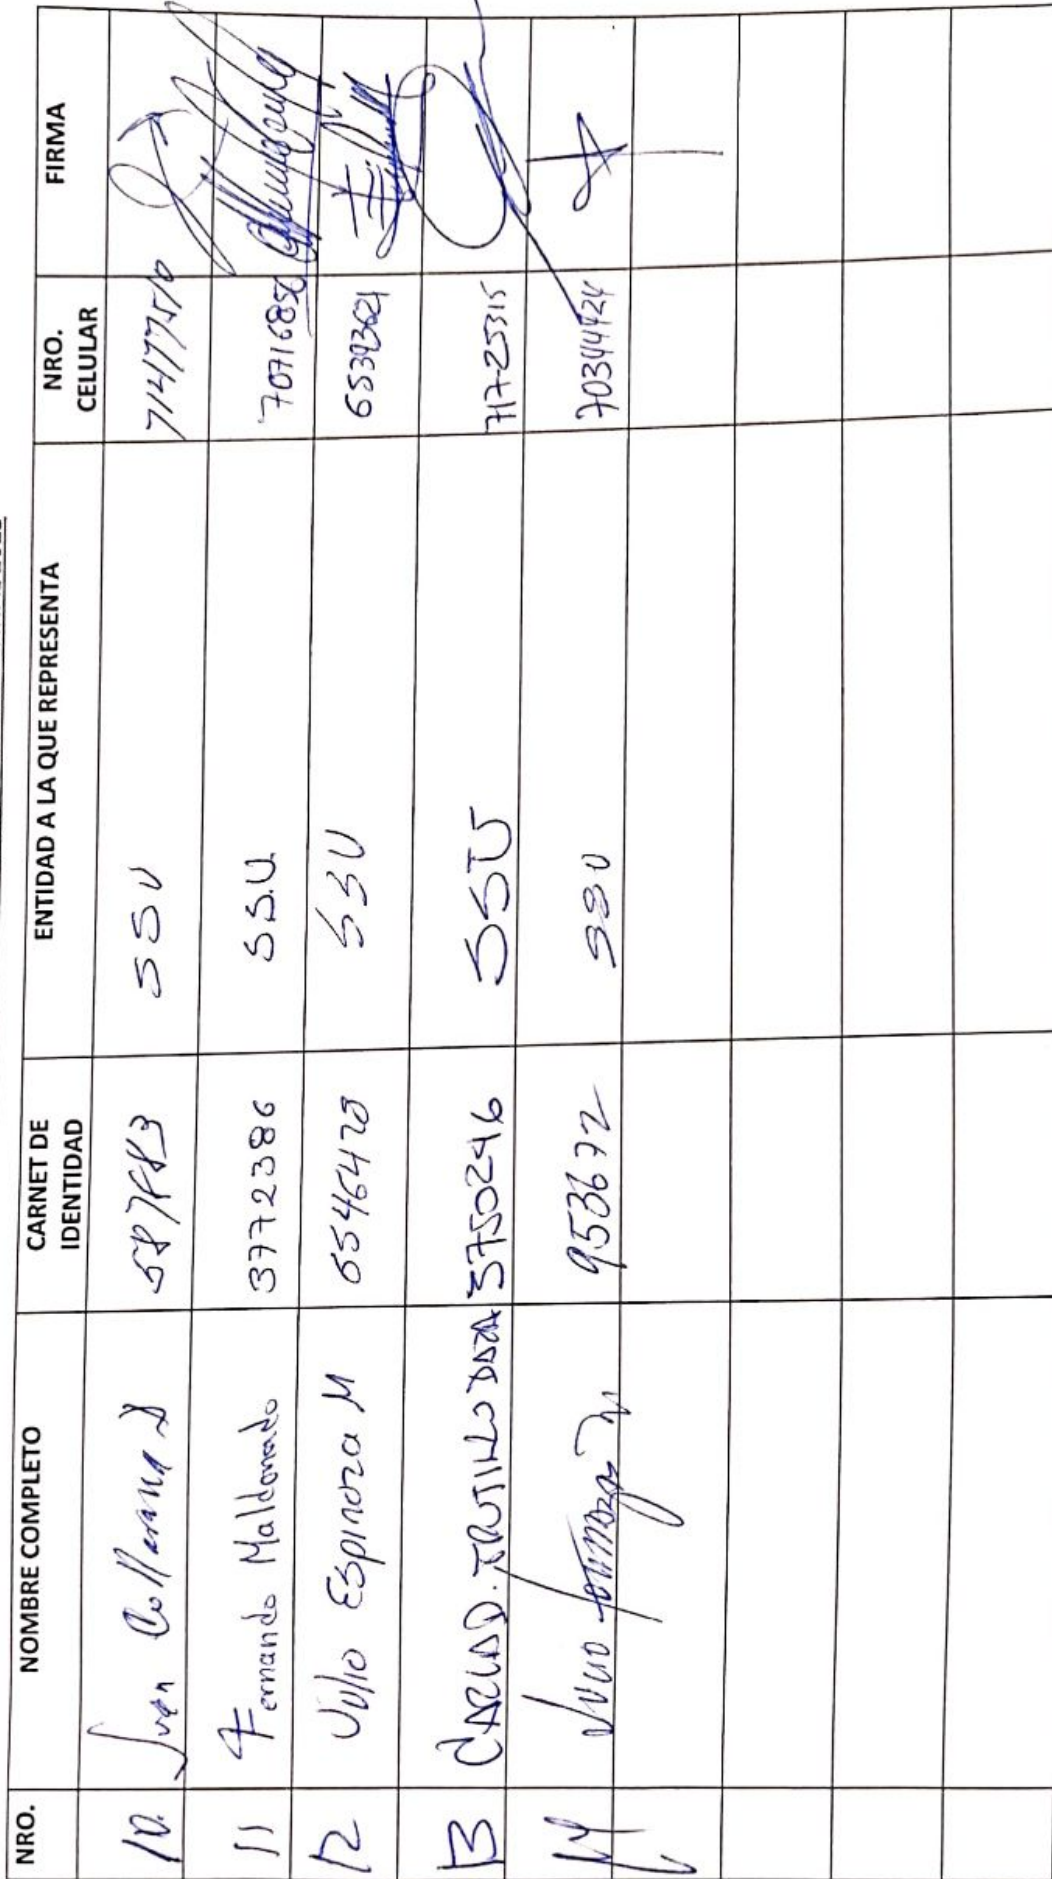 NRO. NOMBRE COMPLETO CARNET DE IDENTIDAD ENTIDAD A LA QUE REPRESENTA NRO. CELULAR FIRMA
10. Juan Collarana SSU
11 Fernando Maldonado 3772386 S.S.U. 70716856
12 Julio Espinoza M 6546478 SSU 65393621
13 CARLA D. TRUJILLO DAZA 3750246 SSU 717-25315
14 Julio 953672 SSU 70344424